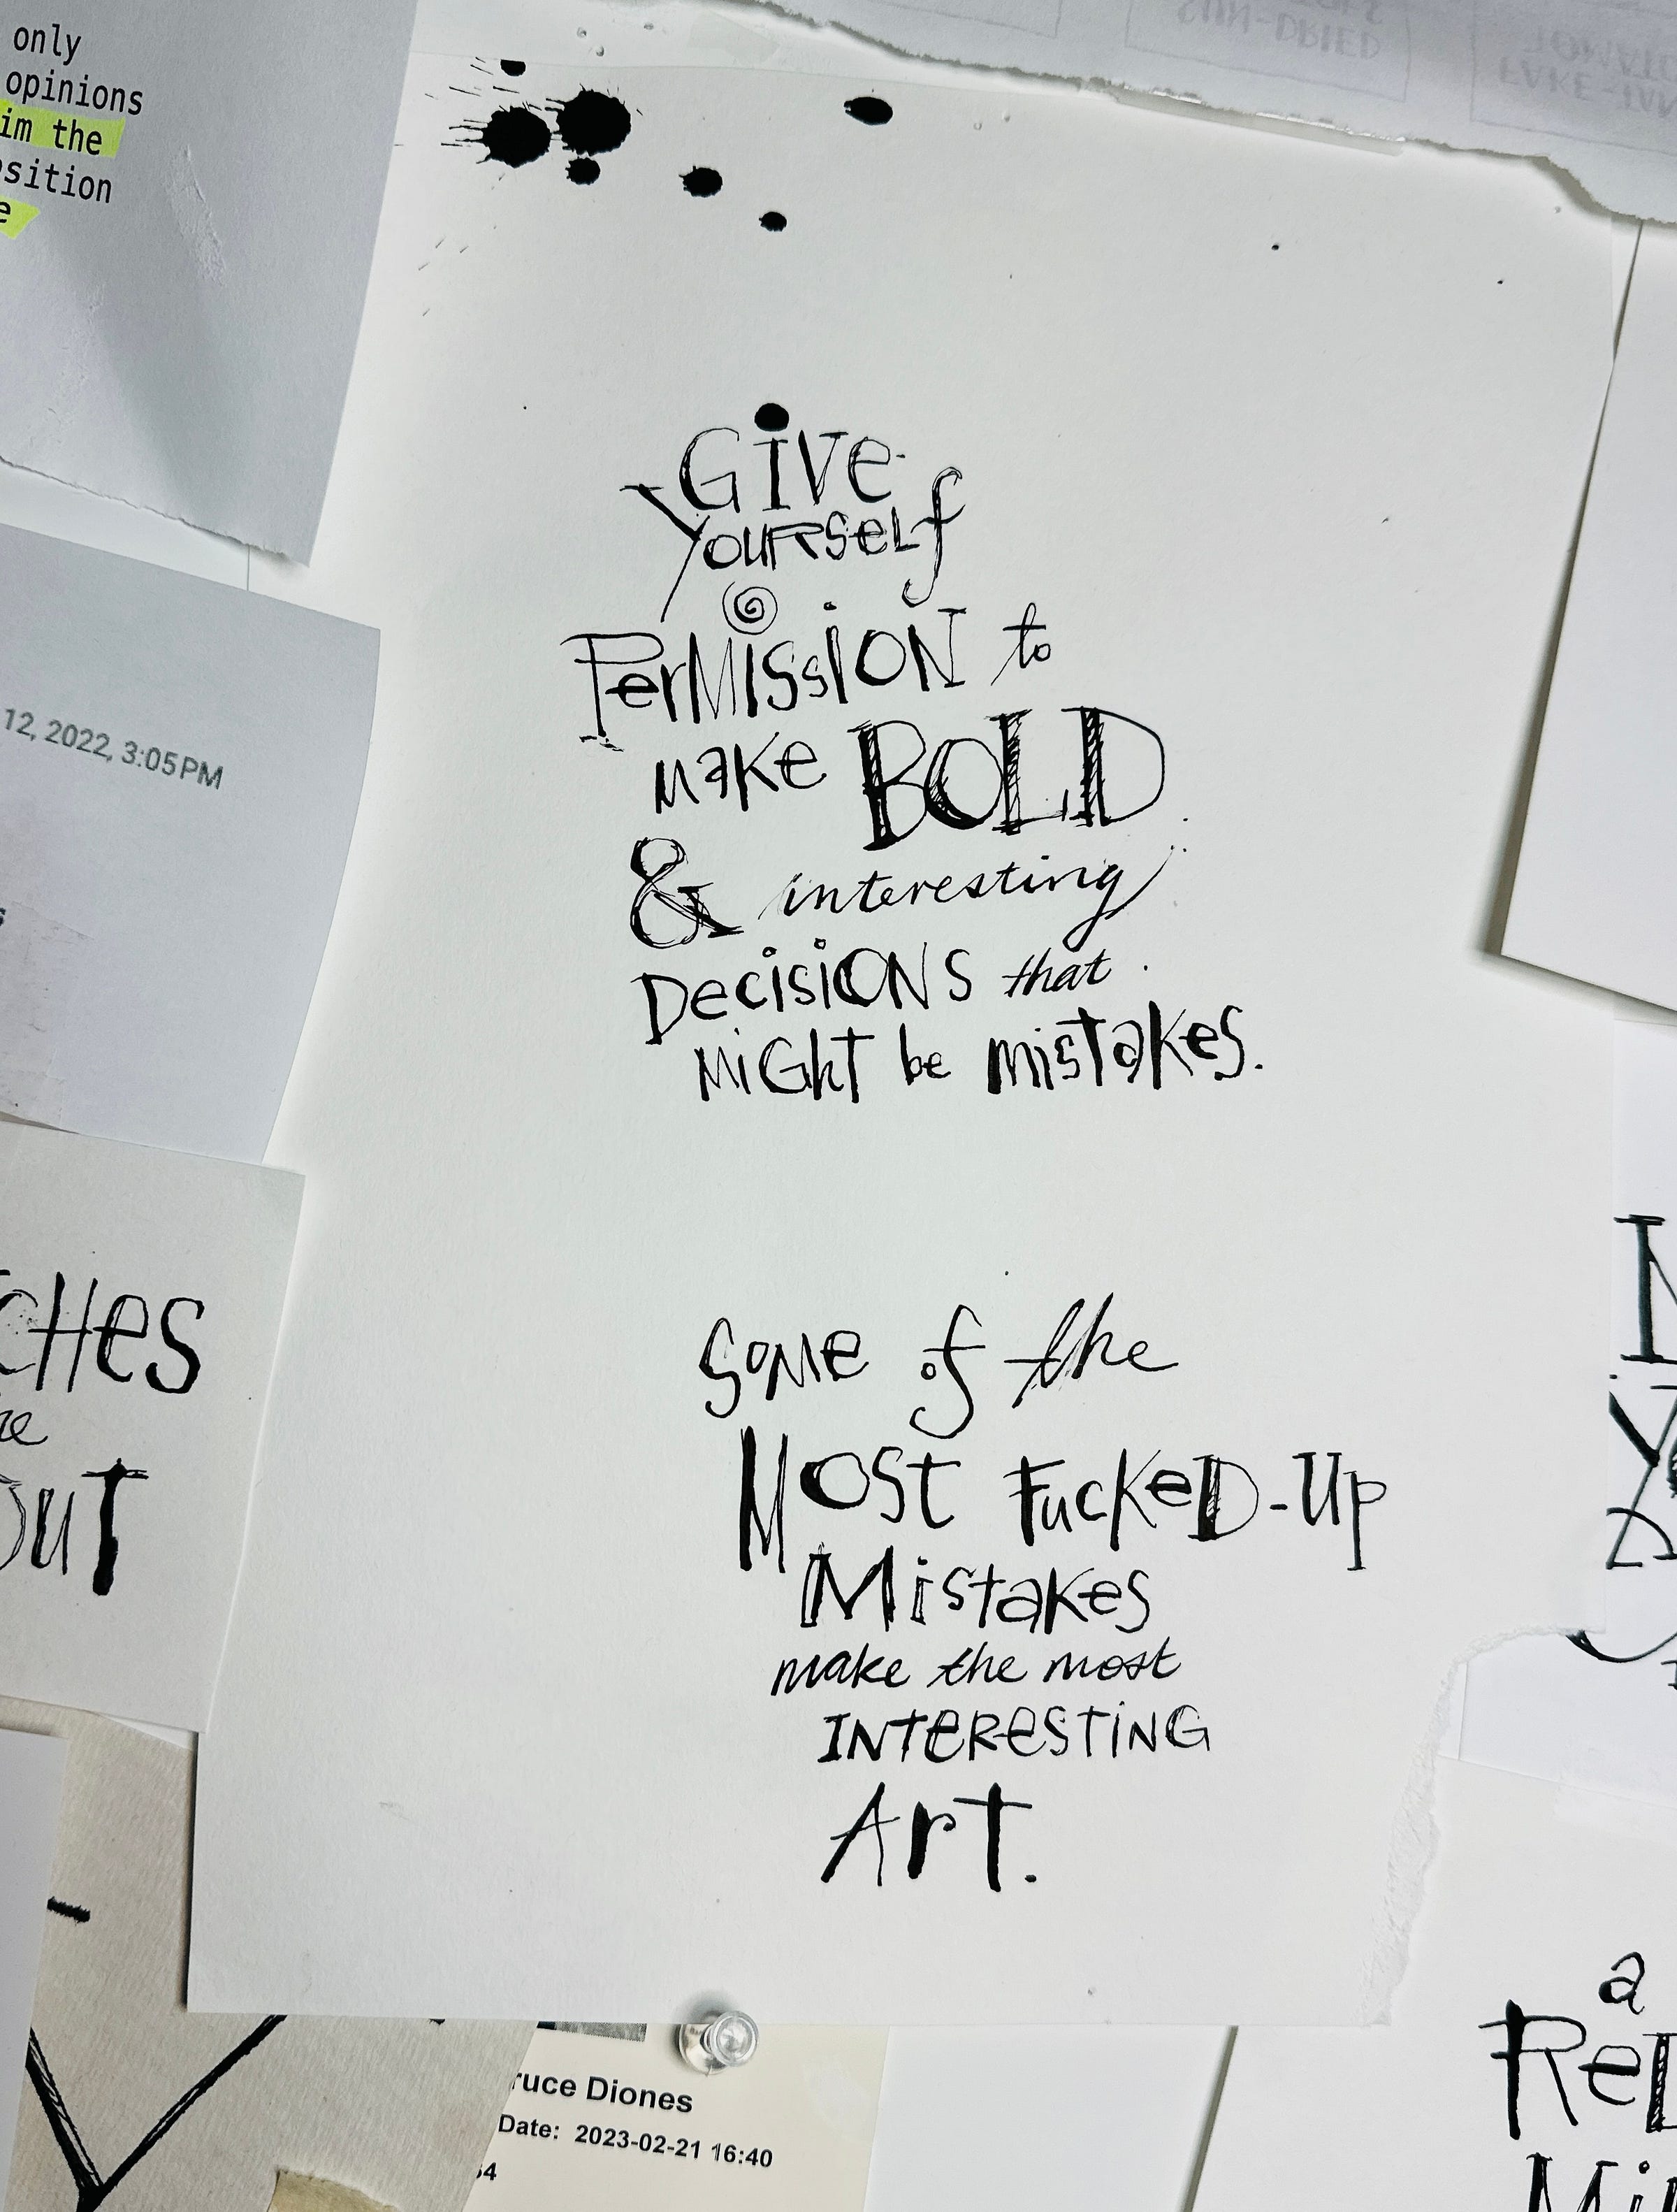 only
opinions
the
12, 2022, 3:05 PM
SUN-DRIED
GiVe
YOURSELf
PerMISsION to
make BOLD
& interesting
DecisiONS that
MiGhT be misTakes.
SOMe of the
MOST FucKeD-Up
MistaKes
make the most
INTeResTiNG
ArT.
OUT
Diones
Date: 2023-02-21 16:40
a